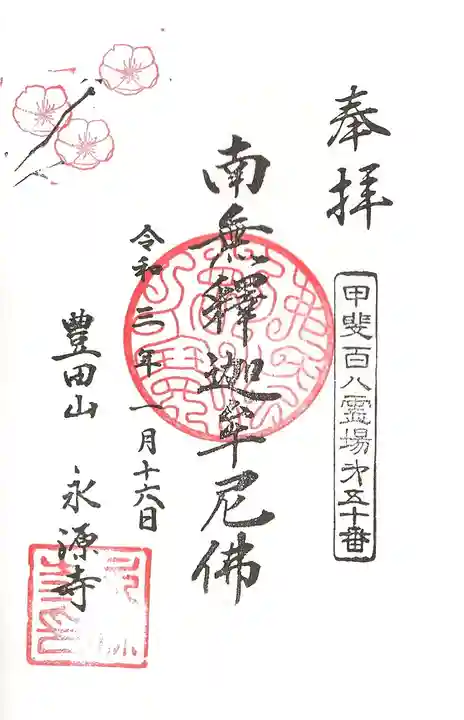 奉拝
甲斐百八霊場第五十番
南無釋迦牟尼佛
令和三年一月十六日
豊田山 永源寺